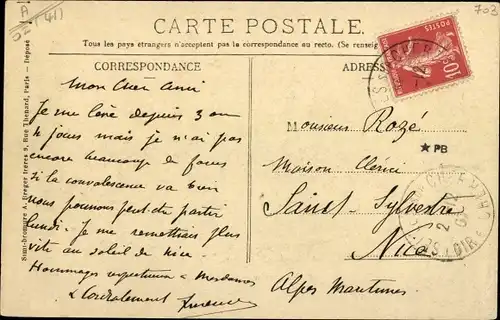 A
(41)
703
CARTE POSTALE.
Tous les pays étrangers n'acceptent pas la correspondance au recto. (Se renseig
CORRESPONDANCE
ADRES
POSTES
10
Mon Cher ami
Je me lève depuis 3 ou
4 jours mais je n'ai pas
encore beaucoup de forces
Si la convalescence va bien
nous pourrons peut-être partir
lundi. Je me remettrais plus
vite au soleil de Nice.
Hommages respectueux a Mesdames
& Cordialement
Monsieur Rozé
★ PB
Maison
Saint-Sylvestre
Nice
Alpes Maritimes
Semi-bromure A. Breger frères 9, Rue Thenard, Paris — Déposé